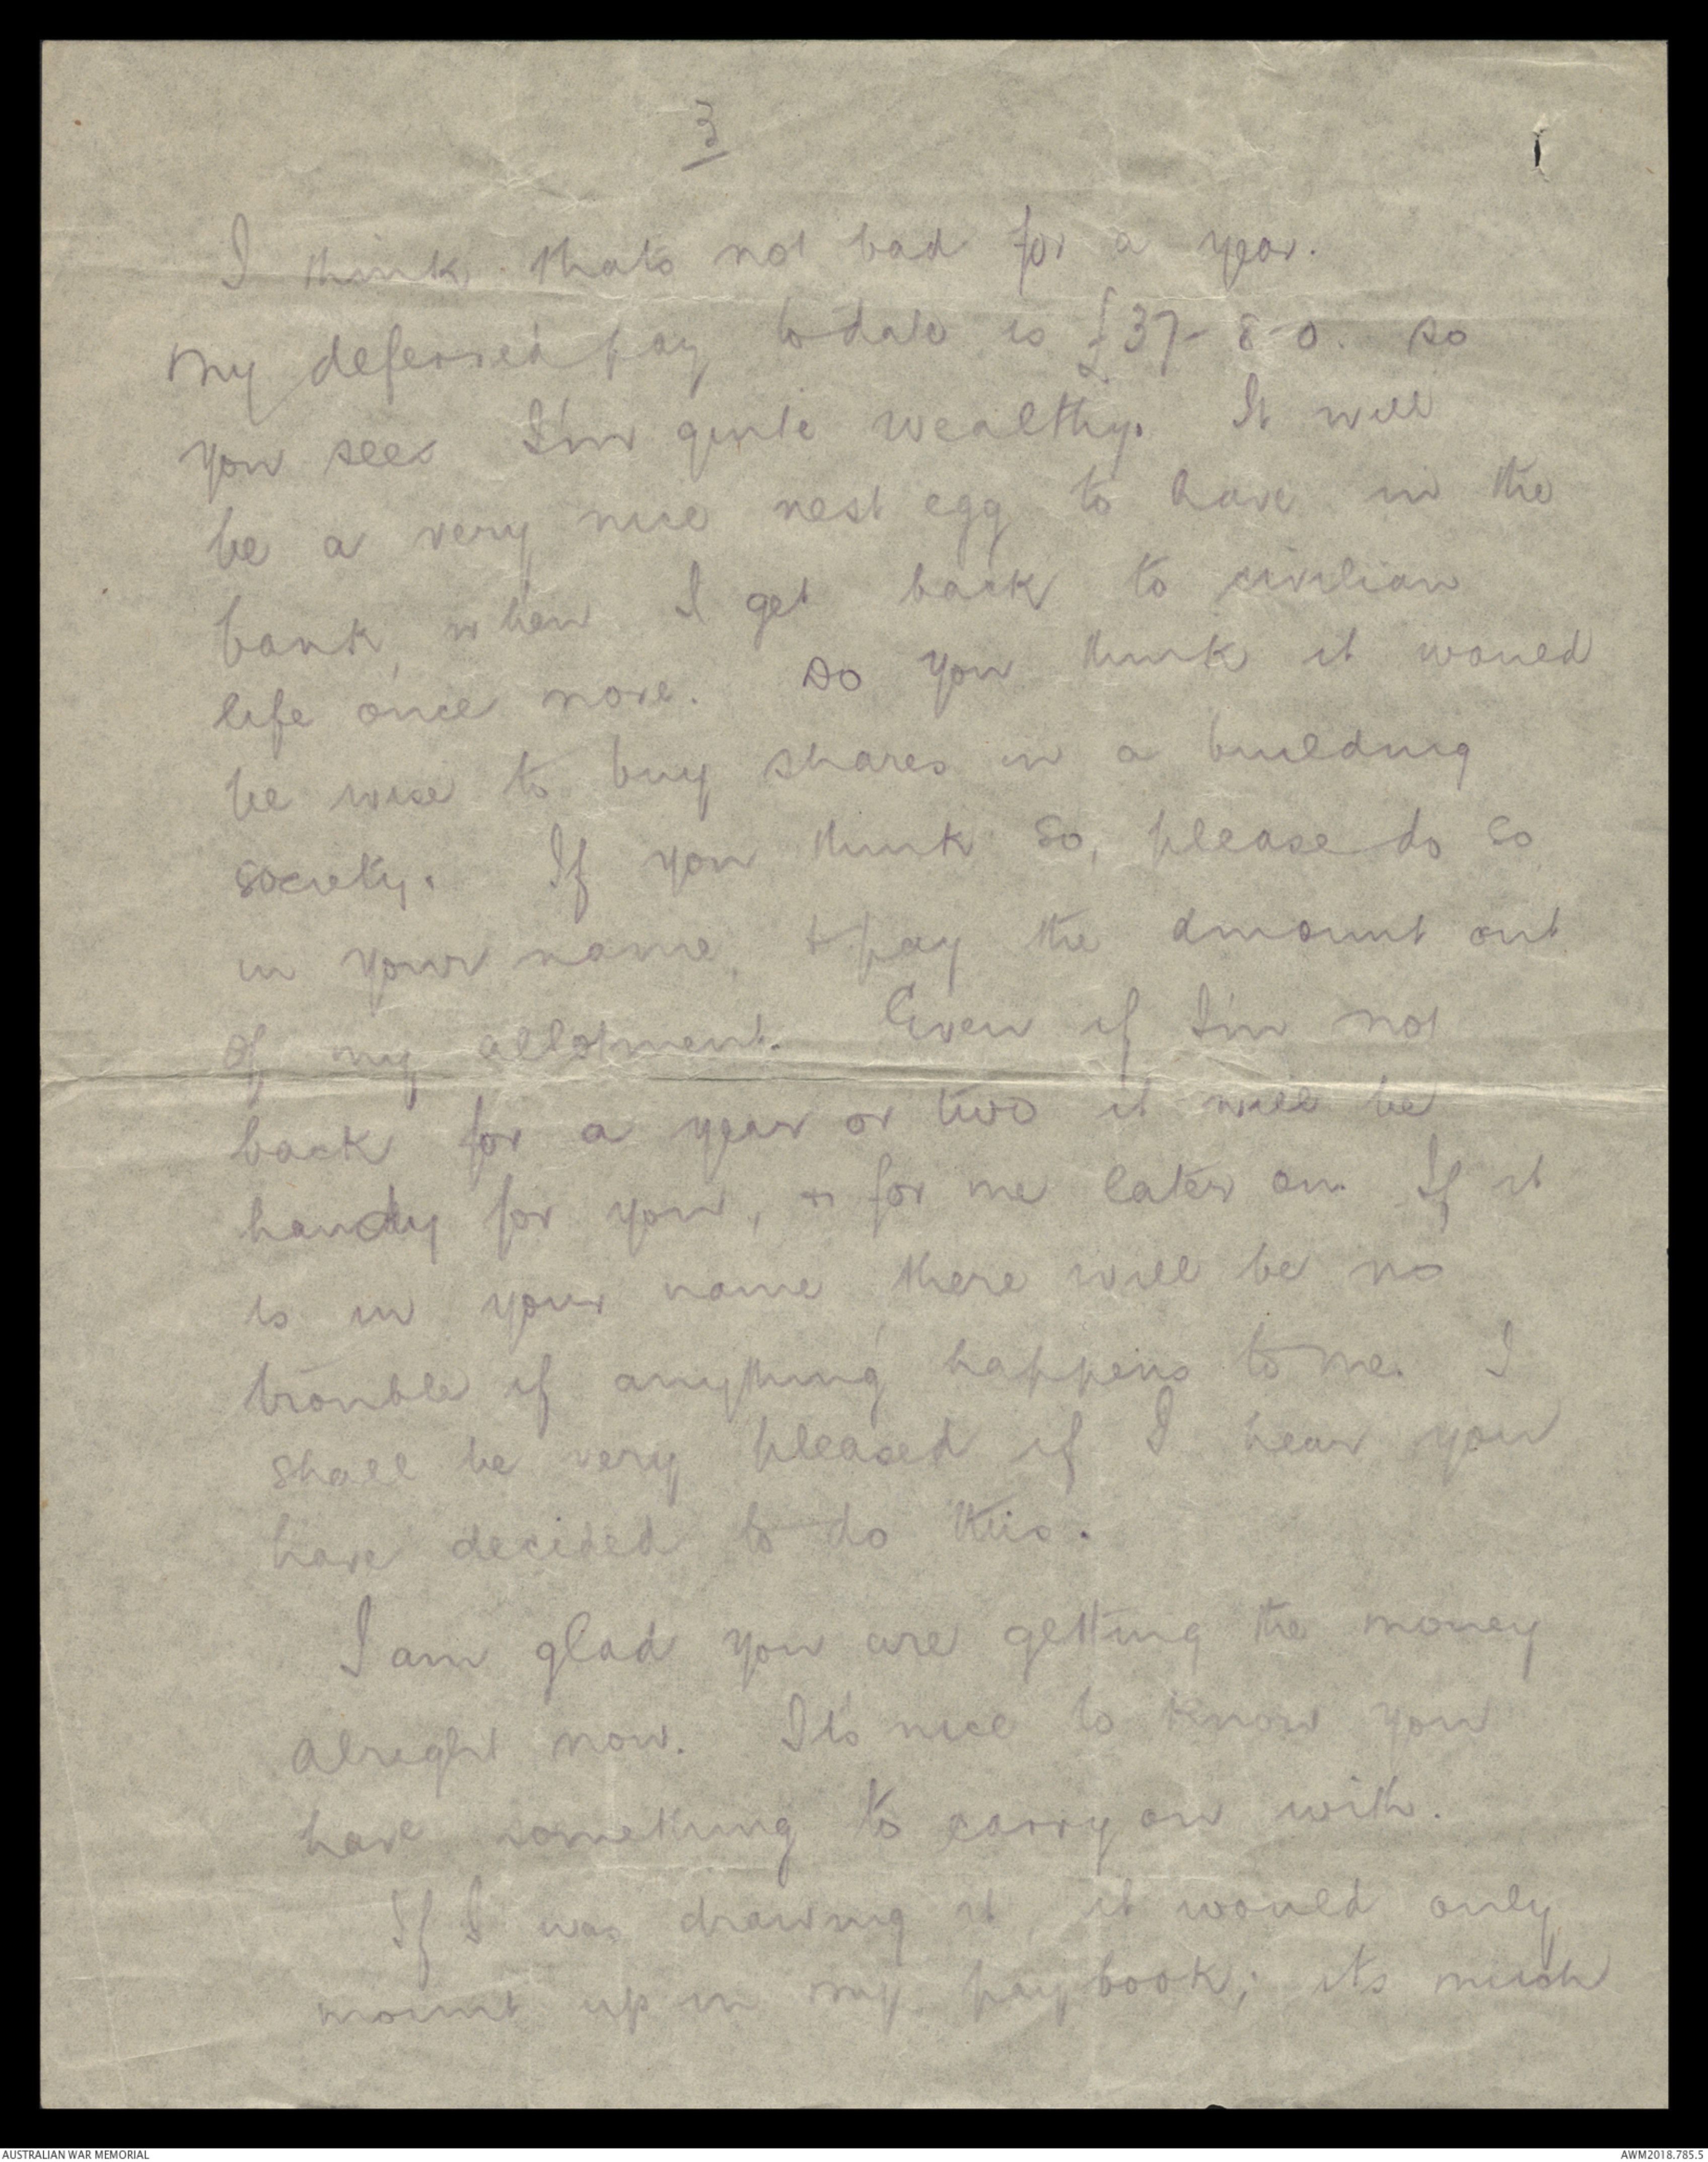 3
I think thats not bad for a year.
My deferred pay todate is £37-8-0. so
you see I'm quite wealthy. It will
be a very nice nest egg to have in the
bank, when I get back to civilian
life once more. Do you think it would
be wise to buy shares in a building
society. If you think so, please do so
in your name, & pay the amount out
of my allotment. Even if I'm not
back for a year or two it will be
handy for you, & for me later on. If it
is in your name, there will be no
trouble if anything happens to me. I
shall be very pleased if I hear you
have decided to do this.
I am glad you are getting the money
alright now. It's nice to know you
have something to carry on with.
If I was drawing it, it would only
mount up in my paybook; its much
AUSTRALIAN WAR MEMORIAL
AWM2018.785.5